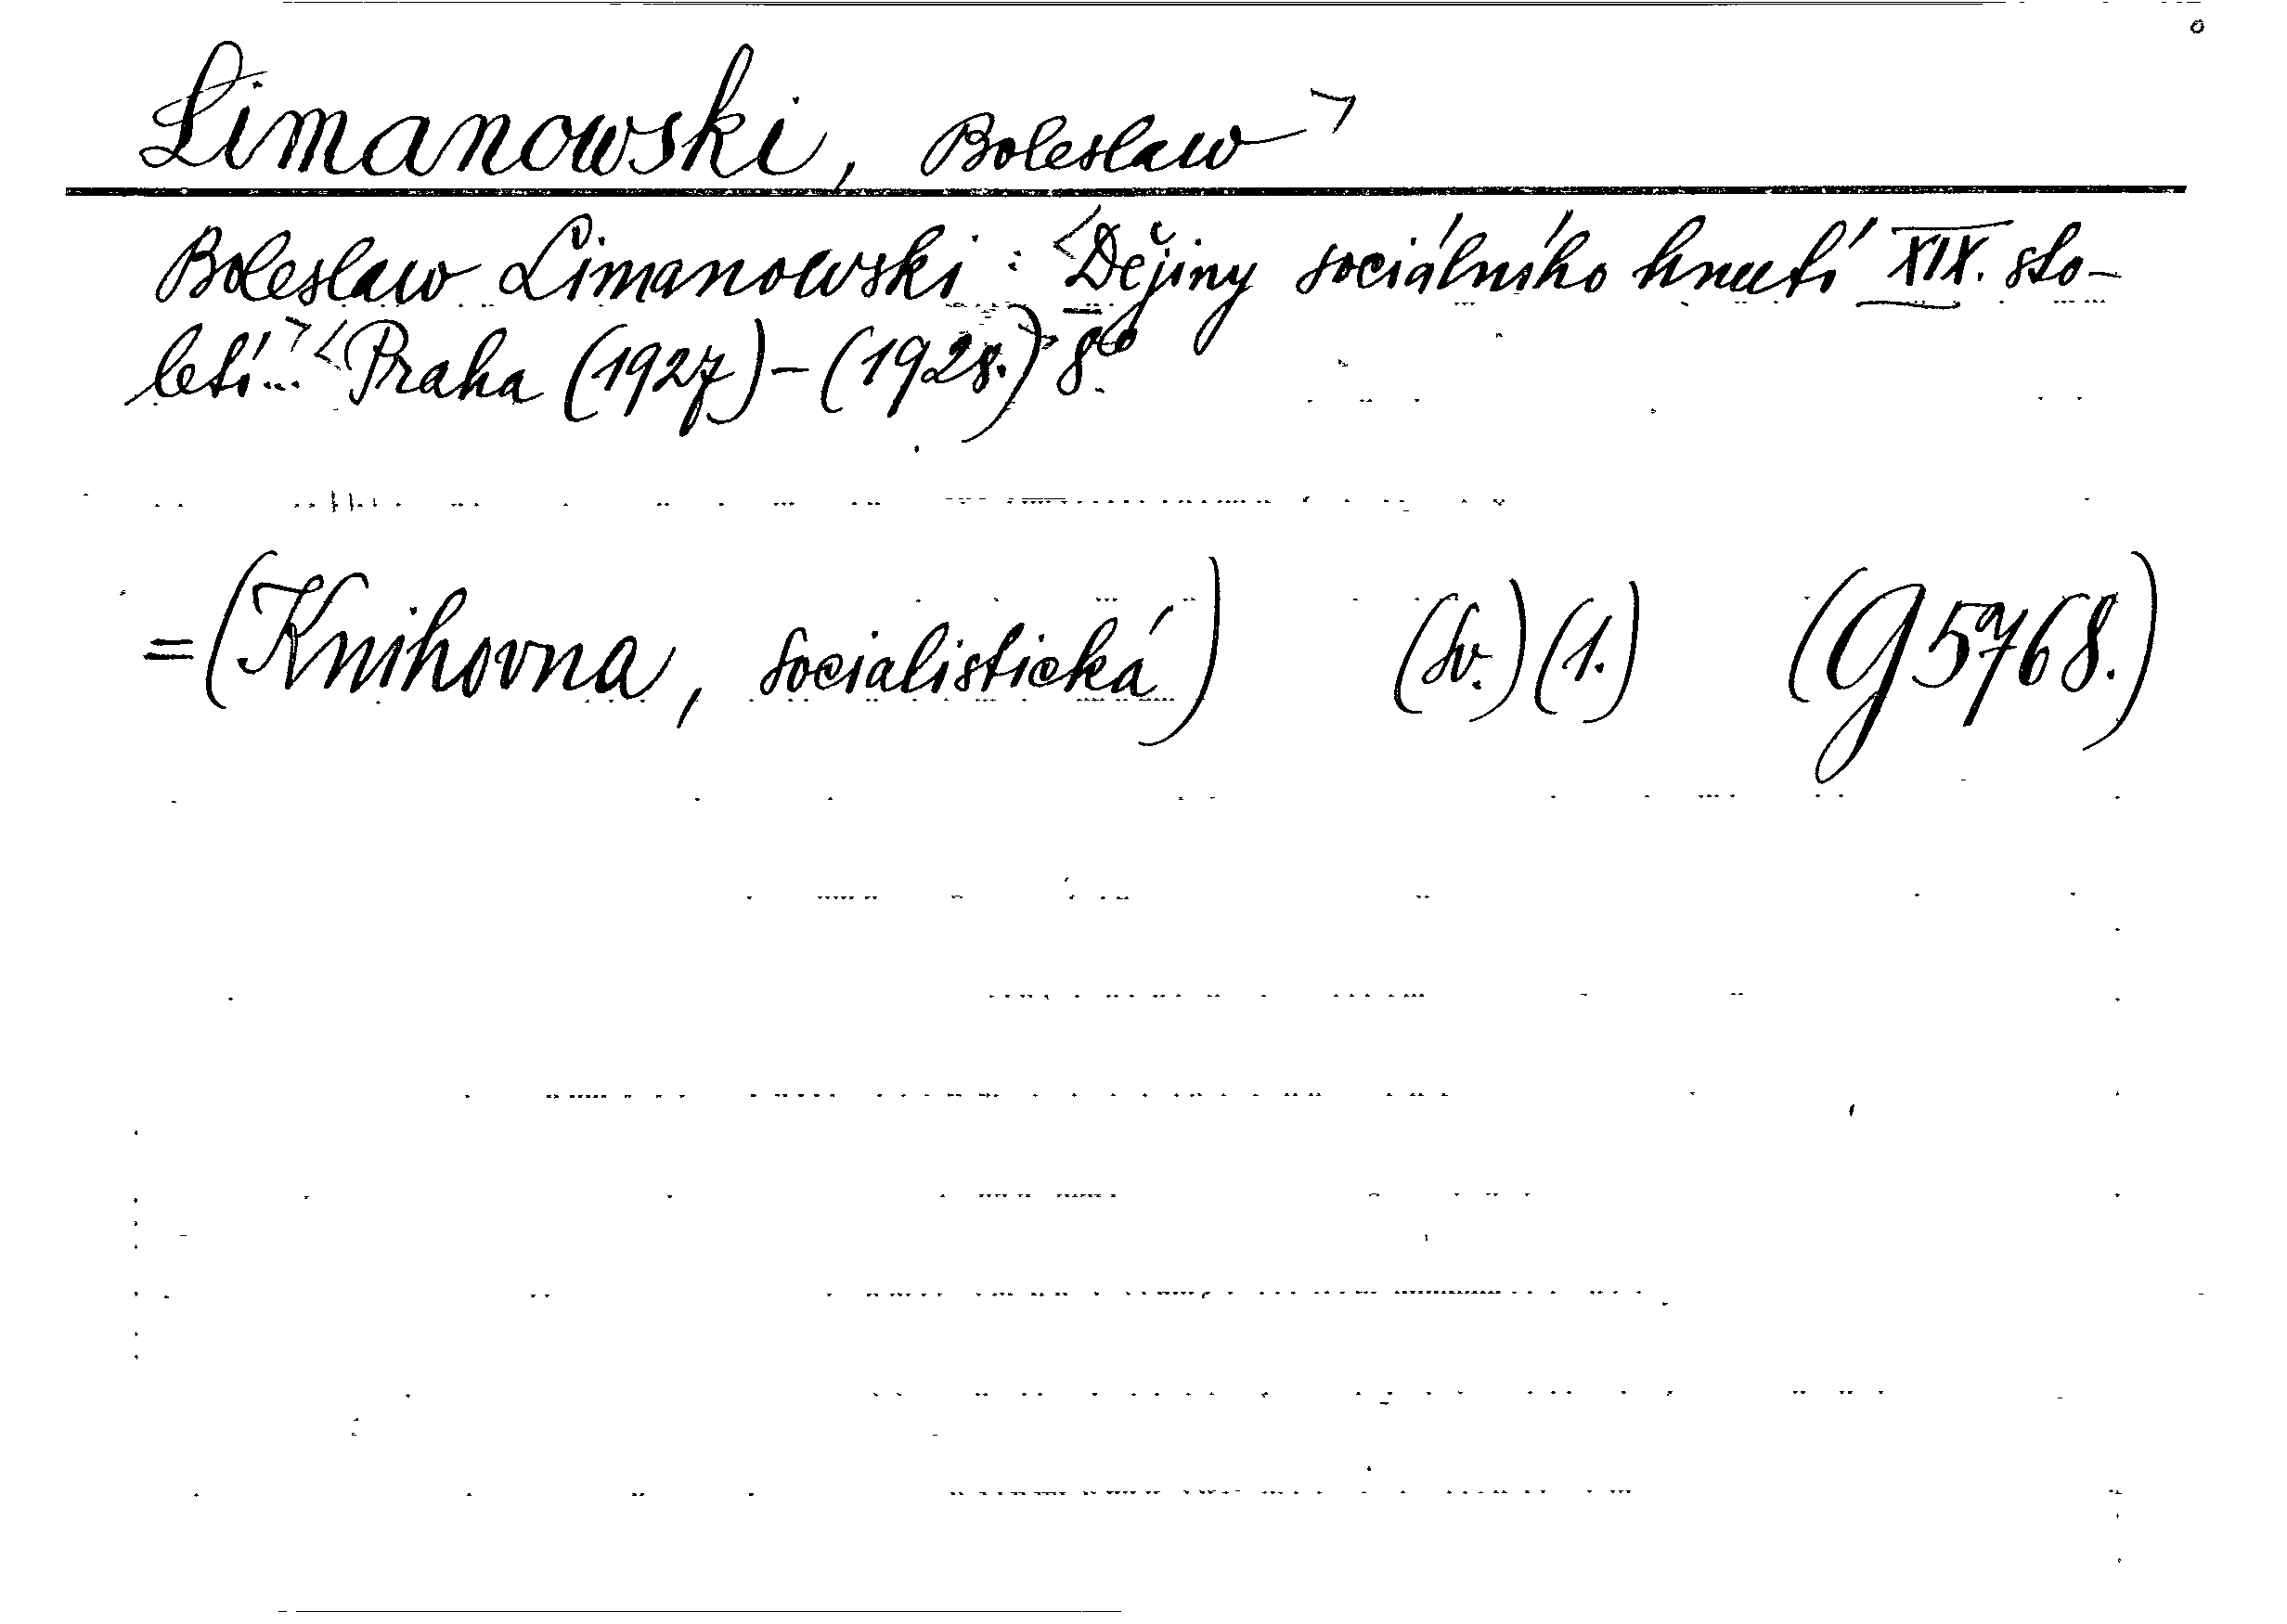 Limanowski, Boleslaw >
Boleslaw Limanowski : <Dějiny sociálního hnutí XIX. sto-
letí...> <Praha (1927)-(1928.)> 8°.
=(Knihovna, socialistická) (Sv.)(1.) (G5768.)